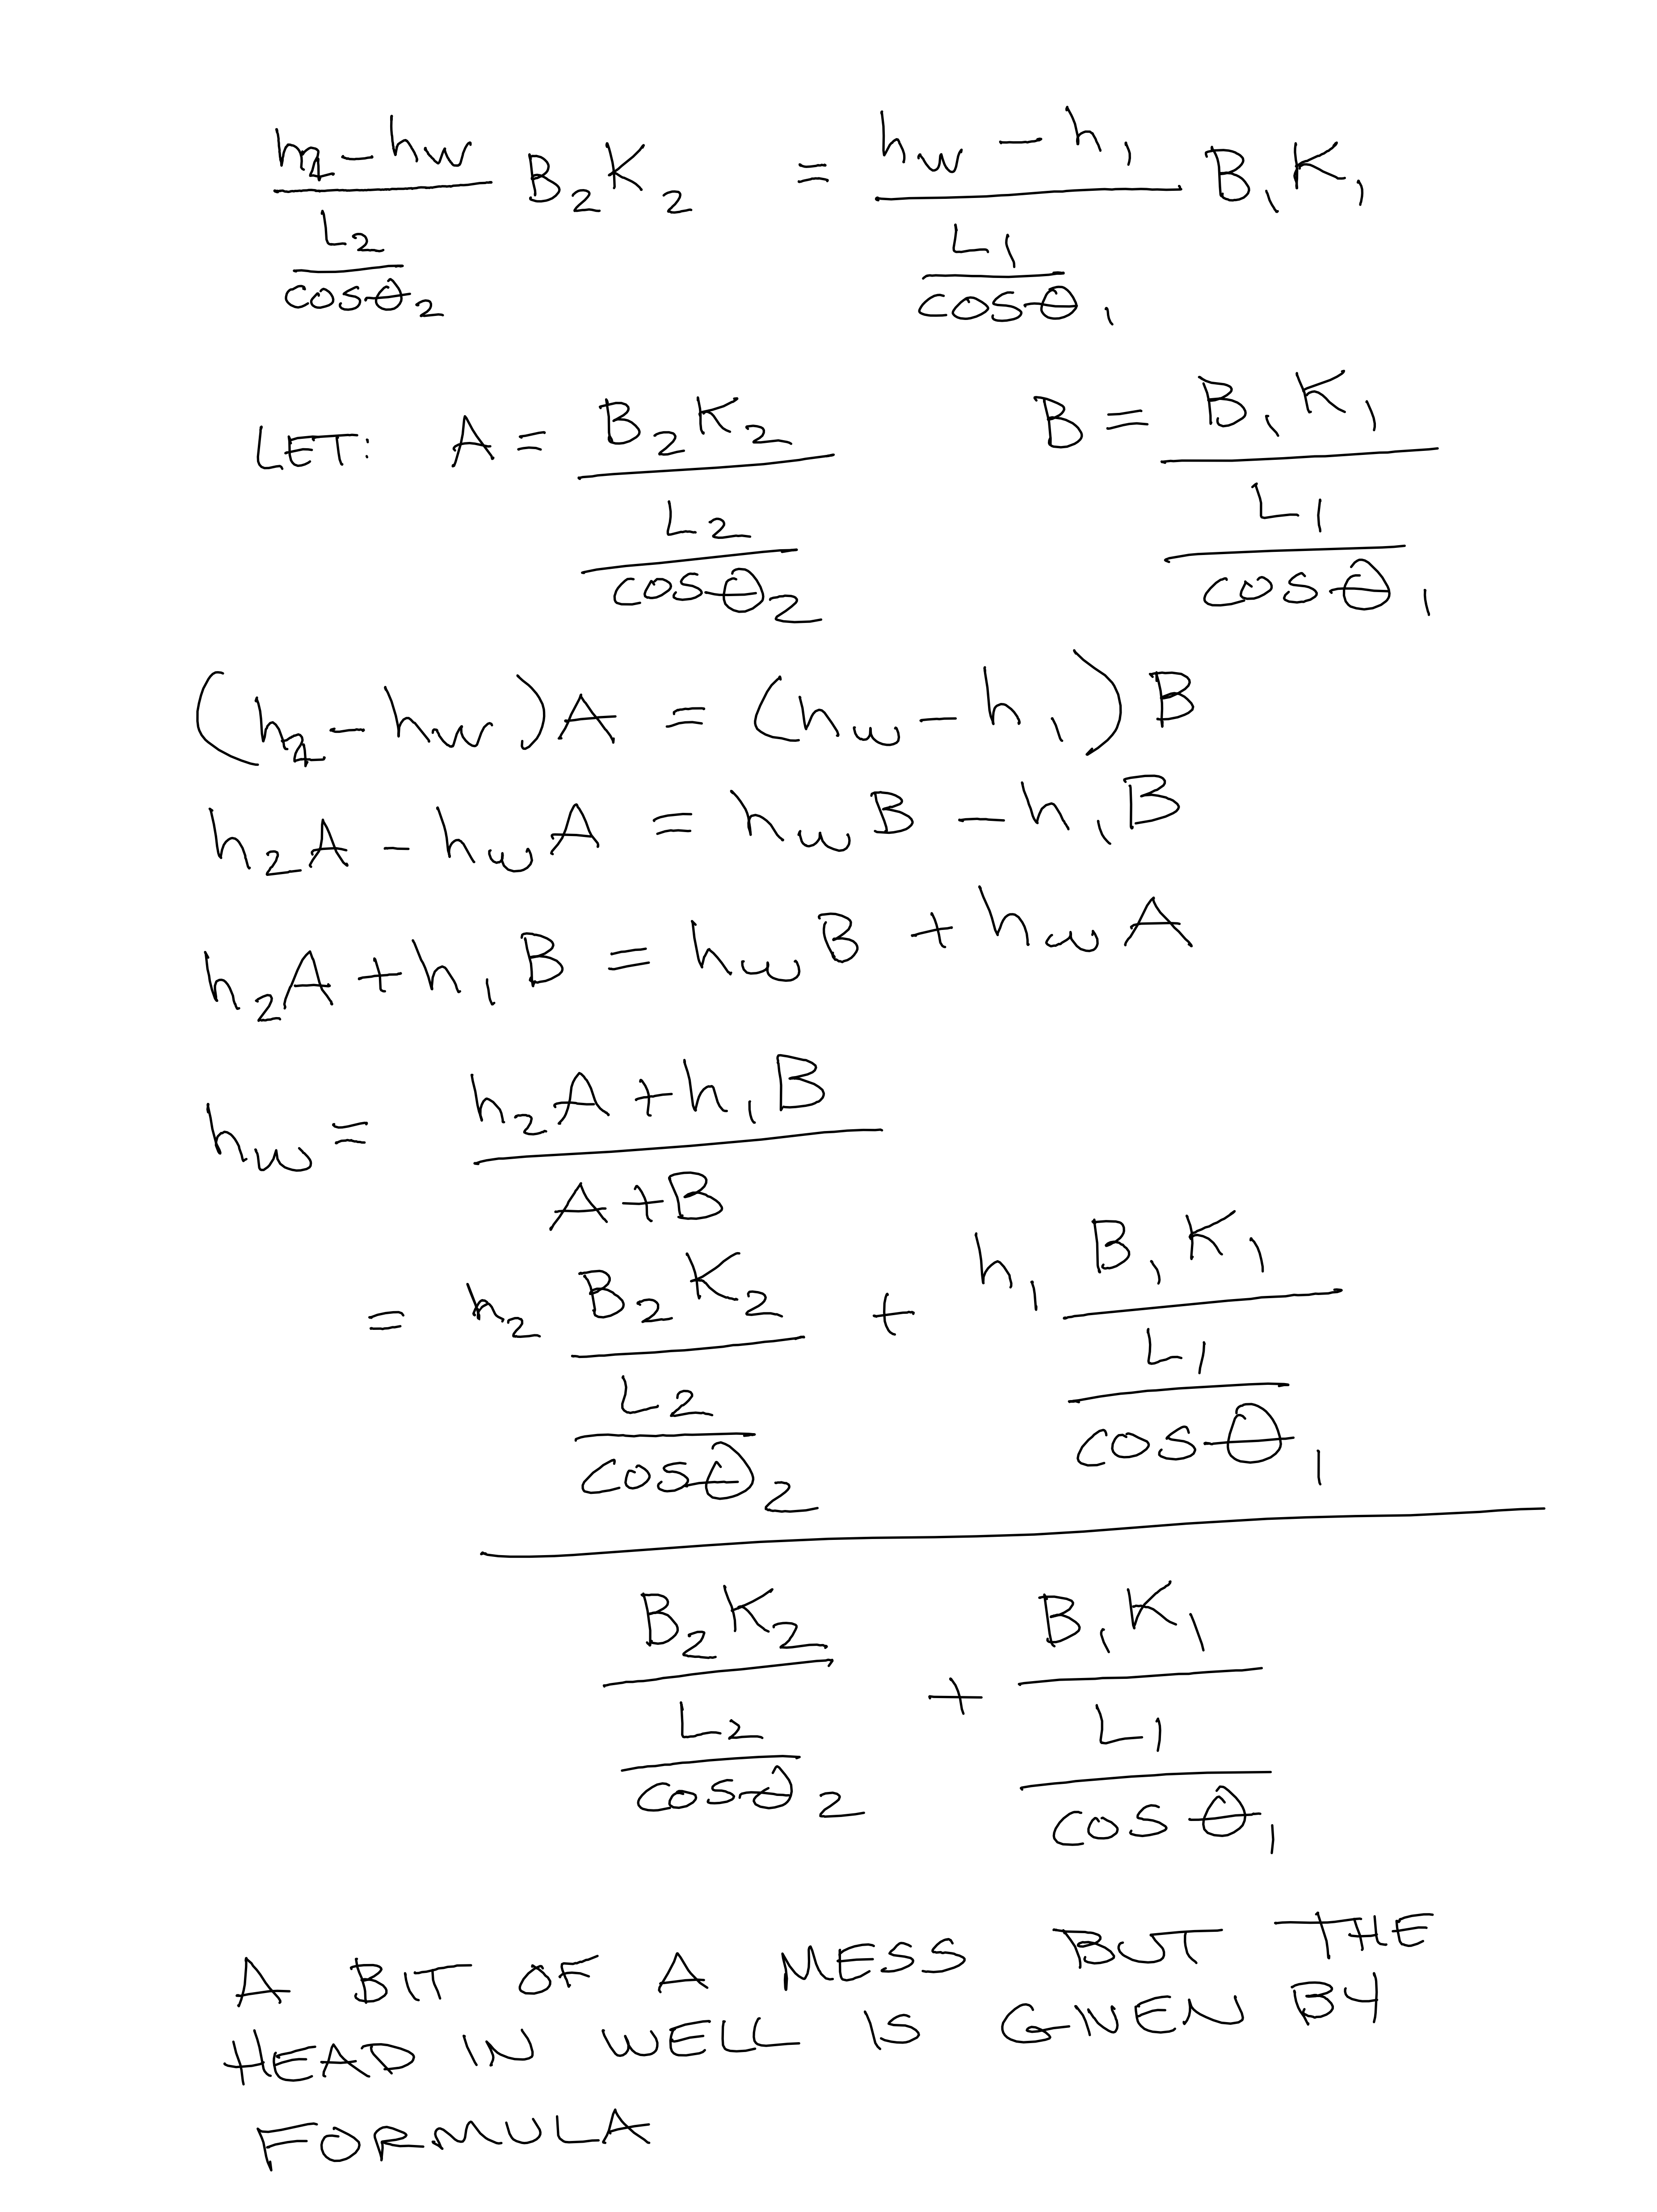 h₂ - hw / (L₂ / cosθ₂) B₂K₂ = hw - h₁ / (L₁ / cosθ₁) B₁K₁
LET: A = B₂K₂ / (L₂ / cosθ₂) B = B₁K₁ / (L₁ / cosθ₁)
(h₂ - hw)A = (hw - h₁)B
h₂A - hwA = hwB - h₁B
h₂A + h₁B = hwB + hwA
hw = h₂A + h₁B / A + B
= h₂ B₂K₂ / (L₂ / cosθ₂) + h₁ B₁K₁ / (L₁ / cosθ₁)
B₂K₂ / (L₂ / cosθ₂) + B₁K₁ / (L₁ / cosθ₁)
A BIT OF A MESS BUT THE
HEAD IN WELL IS GIVEN BY
FORMULA